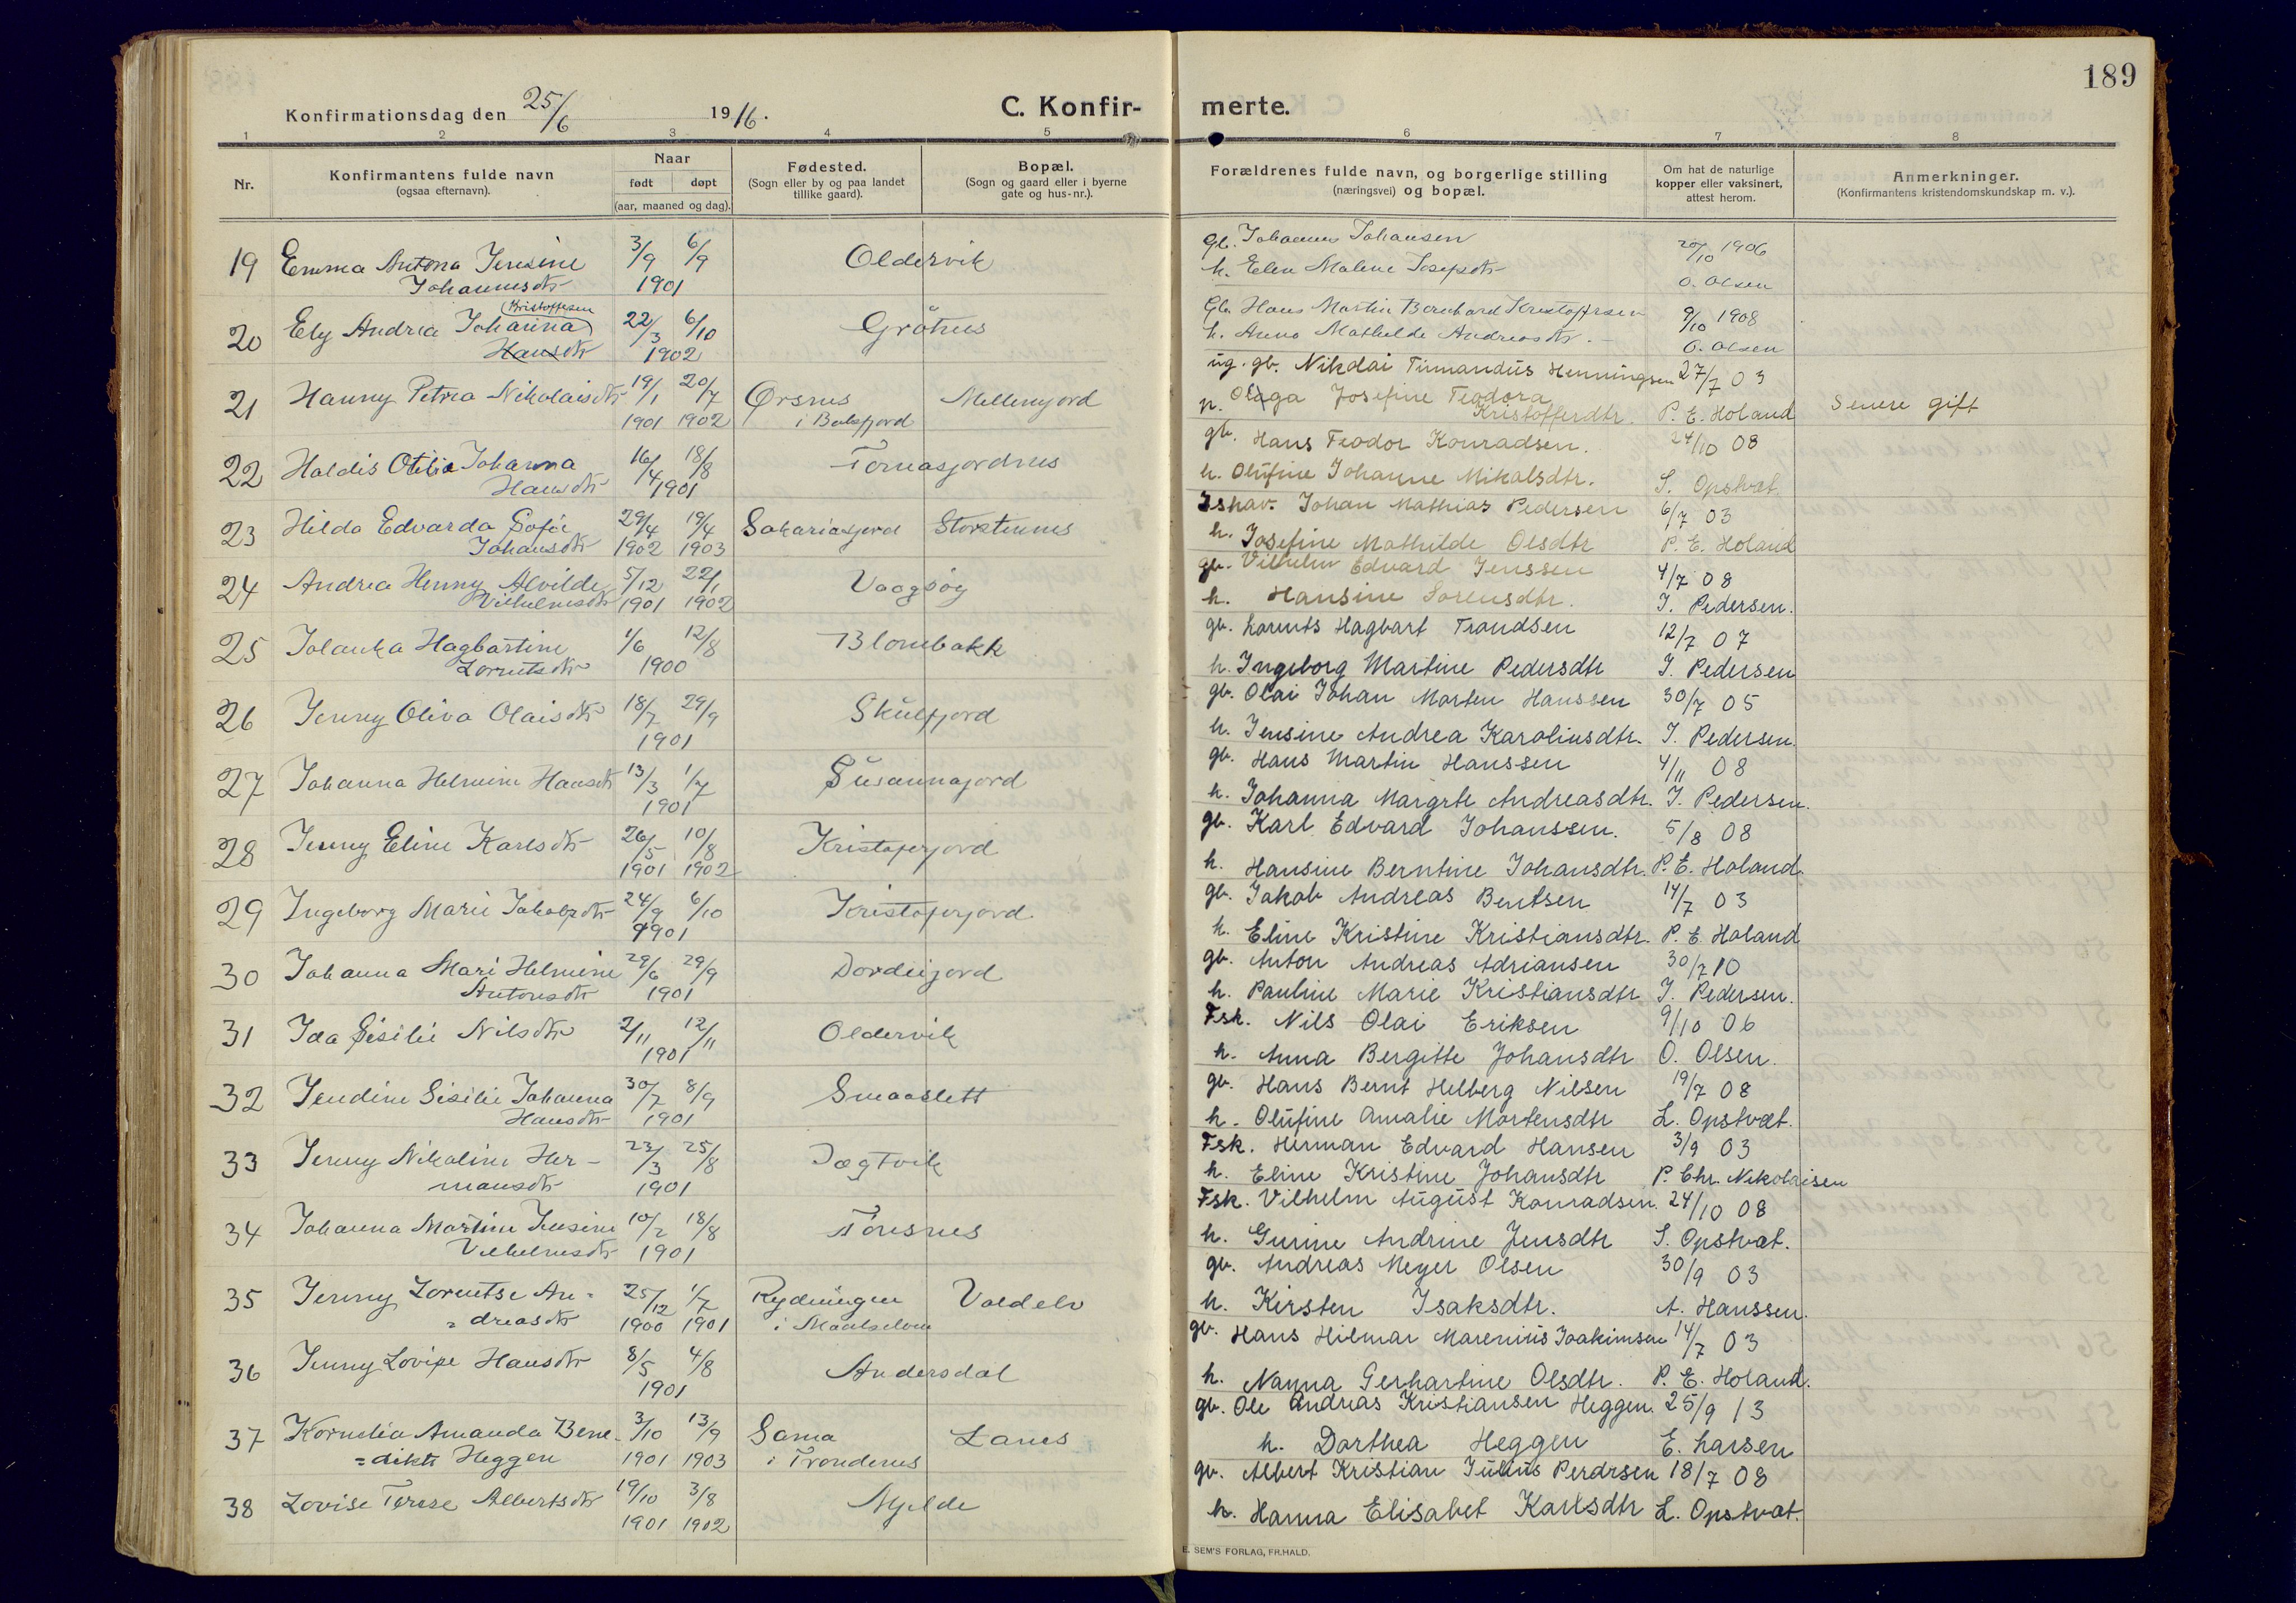 189
Konfirmationsdag den 25/6 1916.
C. Konfir-
merte.
1 2 3 4 5
6 7 8
Nr.
Konfirmantens fulde navn
(ogsaa efternavn).
Naar
født døpt
(aar, maaned og dag).
Fødested.
(Sogn eller by og paa landet
tillike gaard).
Bopæl.
(Sogn og gaard eller i byerne
gate og hus-nr.).
Forældrenes fulde navn, og borgerlige stilling
(næringsvei) og bopæl.
Om hat de naturlige
kopper eller vaksinert,
attest herom.
Anmerkninger.
(Konfirmantens kristendomskundskap m. v.).
19 Emma Antona Jensine 3/9 6/9 Oldervik
Johannesdtr 1901
Gb. Johannes Johansen 20/10 1906
h. Elen Malene Josefsdtr O. Olsen
Kristoffersen
20 Ely Andrea Johanna 22/3 6/10 Grøtnes
Hansdtr 1902
Gb. Hans Martin Bernhard Kristoffersen 9/10 1908
h. Anna Mathilde Andreasdtr. O. Olsen
21 Hanny Petrea Nikolaisdtr 19/1 20/7 Ørsnes Mellemjord
1901 1902 i Balsfjord
ug. gb. Nikolai Finnandus Henningsen 27/7 03
p. Olga Josefine Teodora
Kristofferdtr. P. E. Holand Senere gift
22 Haldis Otilie Johanna 16/4 18/8 Tomasjordnes
Hansdtr 1901
gb. Hans Teodor Konradsen. 24/10 08
h. Olufine Johanne Mikalsdtr. S. Opstvet.
23 Hilda Edvarda Sofie 29/4 19/4 Sakariasjord Storstennes
Johansdtr 1902 1903
Ishav. Johan Mathias Pedersen 6/7 03
h. Josefine Mathilde Olsdtr P. E. Holand
24 Andrea Henny Alvilde 5/12 22/1 Vaagsøy
Vilhelmsdtr 1901 1902
gb. Vilhelm Edvard Jenssen 4/7 08
h. Hansine Sorensdtr. J. Pedersen.
25 Jolanka Hagbartine 1/6 12/8 Blomebakk
Lorentsdtr 1900
gb. Lorents Hagbart Trondsen 12/7 07
h. Ingeborg Martine Pedersdtr J. Pedersen
26 Jenny Oliva Olaisdtr 18/7 29/9 Skulfjord
1901
gb. Olai Johan Morten Hanssen 30/7 05
h. Jensine Andrea Karoliusdtr. J. Pedersen.
27 Johanna Helmine Hansdtr 13/3 1/7 Susannajord
1901
gb. Hans Martin Hanssen 4/11 08
h. Johanna Margrte Andreasdtr. J. Pedersen.
28 Jenny Eline Karlsdtr 26/5 10/8 Kristoferjord
1901 1902
gb. Karl Edvard Johanssen. 5/8 08
h. Hansine Berntine Johansdtr. P. E. Holand.
29 Ingeborg Marie Jakobsdtr 24/9 6/10 Kristoferjord.
1901
gb. Jakob Andreas Bentsen 14/7 03
h. Eline Kristine Kristiansdtr. P. E. Holand
30 Johanna Mari Helmine 29/6 29/9 Dordiijord
Antonsdtr 1901
gb. Anton Andreas Adriansen 30/7 10
h. Pauline Marie Kristiansdtr J. Pedersen.
31 Ida Sisilie Nilsdtr 2/11 12/11 Oldervik
1901
Fsk. Nils Olai Eriksen 9/10 06
h. Anna Bergitte Johansdtr O. Olsen.
32 Jendine Sisilie Johanna 30/7 8/9 Smaaslett
Hansdtr 1901
gb. Hans Bernt Helberg Nilsen 19/7 08
h. Olufine Amalie Mortensdtr L. Opstvet.
33 Jenny Nikoline Her- 23/3 25/8 Jægtvik
mansdtr 1901
Fsk. Herman Edvard Hansen 3/9 03
h. Eline Kristine Johansdtr P. Chr. Nikolaisen
34 Johanna Martine Jensine 10/2 18/8 Tonsnes
Vilhelmsdtr 1901
Fsk. Vilhelm August Konradsen. 24/10 08
h. Gurine Andrine Jensdtr S. Opstvet.
35 Jenny Lorentse An= 25/12 1/7 Rydningen Voldelv
=dreasdtr 1900 1901 i Maalselven
gb. Andreas Meyer Olsen 30/9 03
h. Kirsten Isaksdtr. A. Hanssen.
36 Jenny Lovise Hansdtr 8/5 4/8 Andersdal
1901
gb. Hans Hilmar Marenius Joakimsen 14/7 03
h. Nanna Gerhartine Olsdtr. P. E. Holand.
37 Kornelia Amanda Bene- 3/10 13/9 Sama Lanes
=dikte Heggen 1901 1903 i Trondenes
gb. Ole Andreas Kristiansen Heggen. 25/9 13
h. Dorthea Heggen E. Larsen
38 Lovise Terese Albertsdtr 19/10 3/8 Mjelde
1901 1902
gb. Albert Kristian Julius Perdrsen 18/7 08
h. Hanna Elisabet Karlsdtr L. Opstvet.
E. SEM'S FORLAG, FR.HALD.